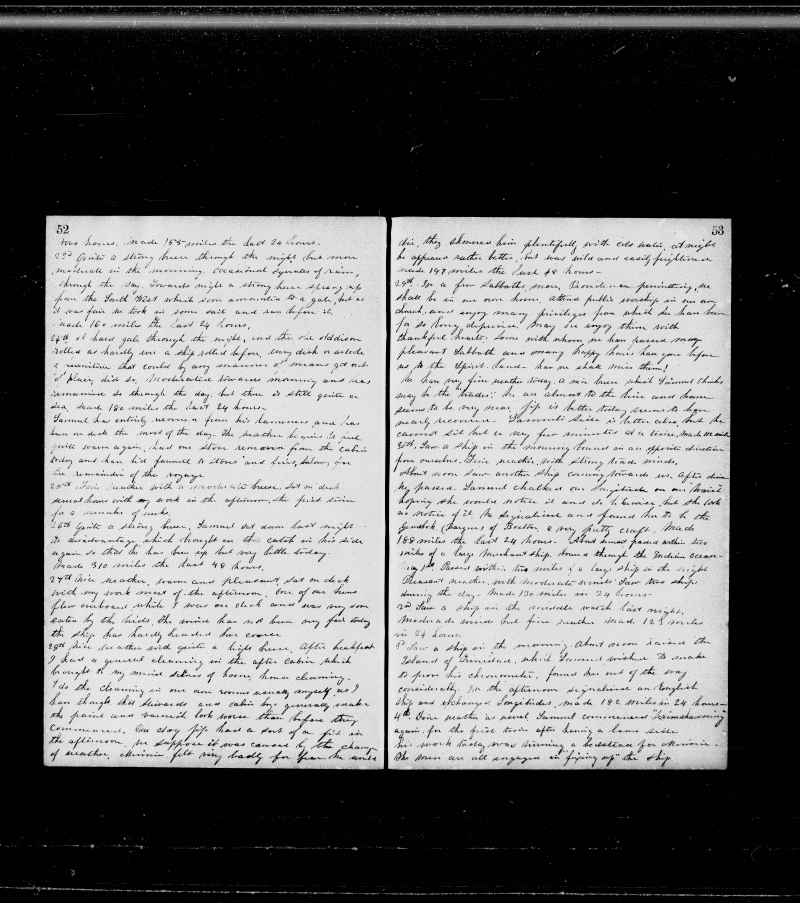 52
two hours. Made 155 miles the last 24 hours.
23rd Quite a strong breeze through the night but more
moderate in the morning. Occasional squalls of rain,
through the day. Towards night a strong breeze sprang up
from the South West which soon amounted to a gale, but as
it was fair we took in some sail and ran before it.
Made 160 miles the last 24 hours,
24th A hard gale through the night, and the old Addison
rolled as hardly ever a ship rolled before, every dish or article
of furniture that could by any manner of means get out
of place, did so, Moderated towards morning and has
remained so through the day but there is still quite a
sea. Made 180 miles the last 24 hours
Samuel has entirely recovered from his lameness and has
been on deck the most of the day. The weather begins to feel
quite warm again, had our stove removed from the cabin
today and have bid farewell to stoves and fires, below, for
the remainder of the voyage
25th Fair, weather with a moderate breeze, sat on deck
several hours with my work in the afternoon, the first time
for a number of weeks.
26th Quite a strong breeze, Samuel sat down last night
to disadvantage which brought on the catch in his side
again so that he has been up but very little today.
Made 310 miles the last 48 hours,
27th Nice weather, warm and pleasant, sat on deck
with my work most of the afternoon. One of our hens
flew overboard while I was on deck and was very soon
eaten by the birds. The wind has not been very fair today
the ship has hardly headed her course
28th Nice weather with quite a light breeze, After breakfast
I had a general cleaning in the after cabin, which
brought to my mind scenes of home, house cleaning.
I do the cleaning in our own rooms usually myself, as I
have thought that Stewards and cabin boys generally make
the paint and varnish look worse than before they
commenced. Our dog Jip had a sort of a fit in
the afternoon, we suppose it was caused by the change
of weather, Minnie felt very badly for fear he would
53
die, they showered him plentifully with cold water, at night
he appeared rather better, but was wild and easily frightened
made 197 miles the last 48 hours
29th In a few Sabbaths, more, Providence permitting, we
shall be in our own home, attend public worship in our own
church, and enjoy many privileges from which we have been
for so long deprived, May we enjoy them with
thankful hearts. Some with whom we have passed many
pleasant Sabbath and many happy hours have gone before
us to the Spirit land. how we shall miss them!
We have very fine weather today. A nice breeze which Samuel thinks
may be the "trades". We are almost to the line and home
seems to be very near Jip is better today seems to have
nearly recovered. Samuel's side is better also, but he
cannot sit but a very few minutes at a time, made 140 miles
30th, Saw a ship in the morning bound in an opposite direction
from ourselves. Fine weather, with strong trade winds.
About noon saw another ship coming towards us. After dinner
we passed. Samuel chalked our Longitude on our "waist"
hoping she would notice it and do likewise, but she took
no notice of it. We signalized and found her to be the
Gemsbok (Barque) of Boston, a very pretty craft. Made
188 miles the last 24 hours. About sunset passed within two
miles of a large Merchant ship, bound through the Indian Ocean
May 1st, Passed within two miles of a large ship in the night
Pleasant weather, with moderate winds. Saw two ships
during the day. Made 130 miles in 24 hours
2nd Saw a ship in the middle watch last night.
Moderate winds but fine weather Made 123 miles
in 24 hours.
3d Saw a ship in the morning. About noon raised the
Island of Trinidad, which Samuel wished to make
to prove his chronometer, found her out of the way
considerably. In the afternoon signalized an English
ship and exchanged Longitudes, made 192 miles in 24 hours
4th Fine weather as usual, Samuel commenced Scrimshawing
again, for the first time after having a lame side
his work today was turning a bedstead for Minnie.
The men are all engaged in fixing up the ship